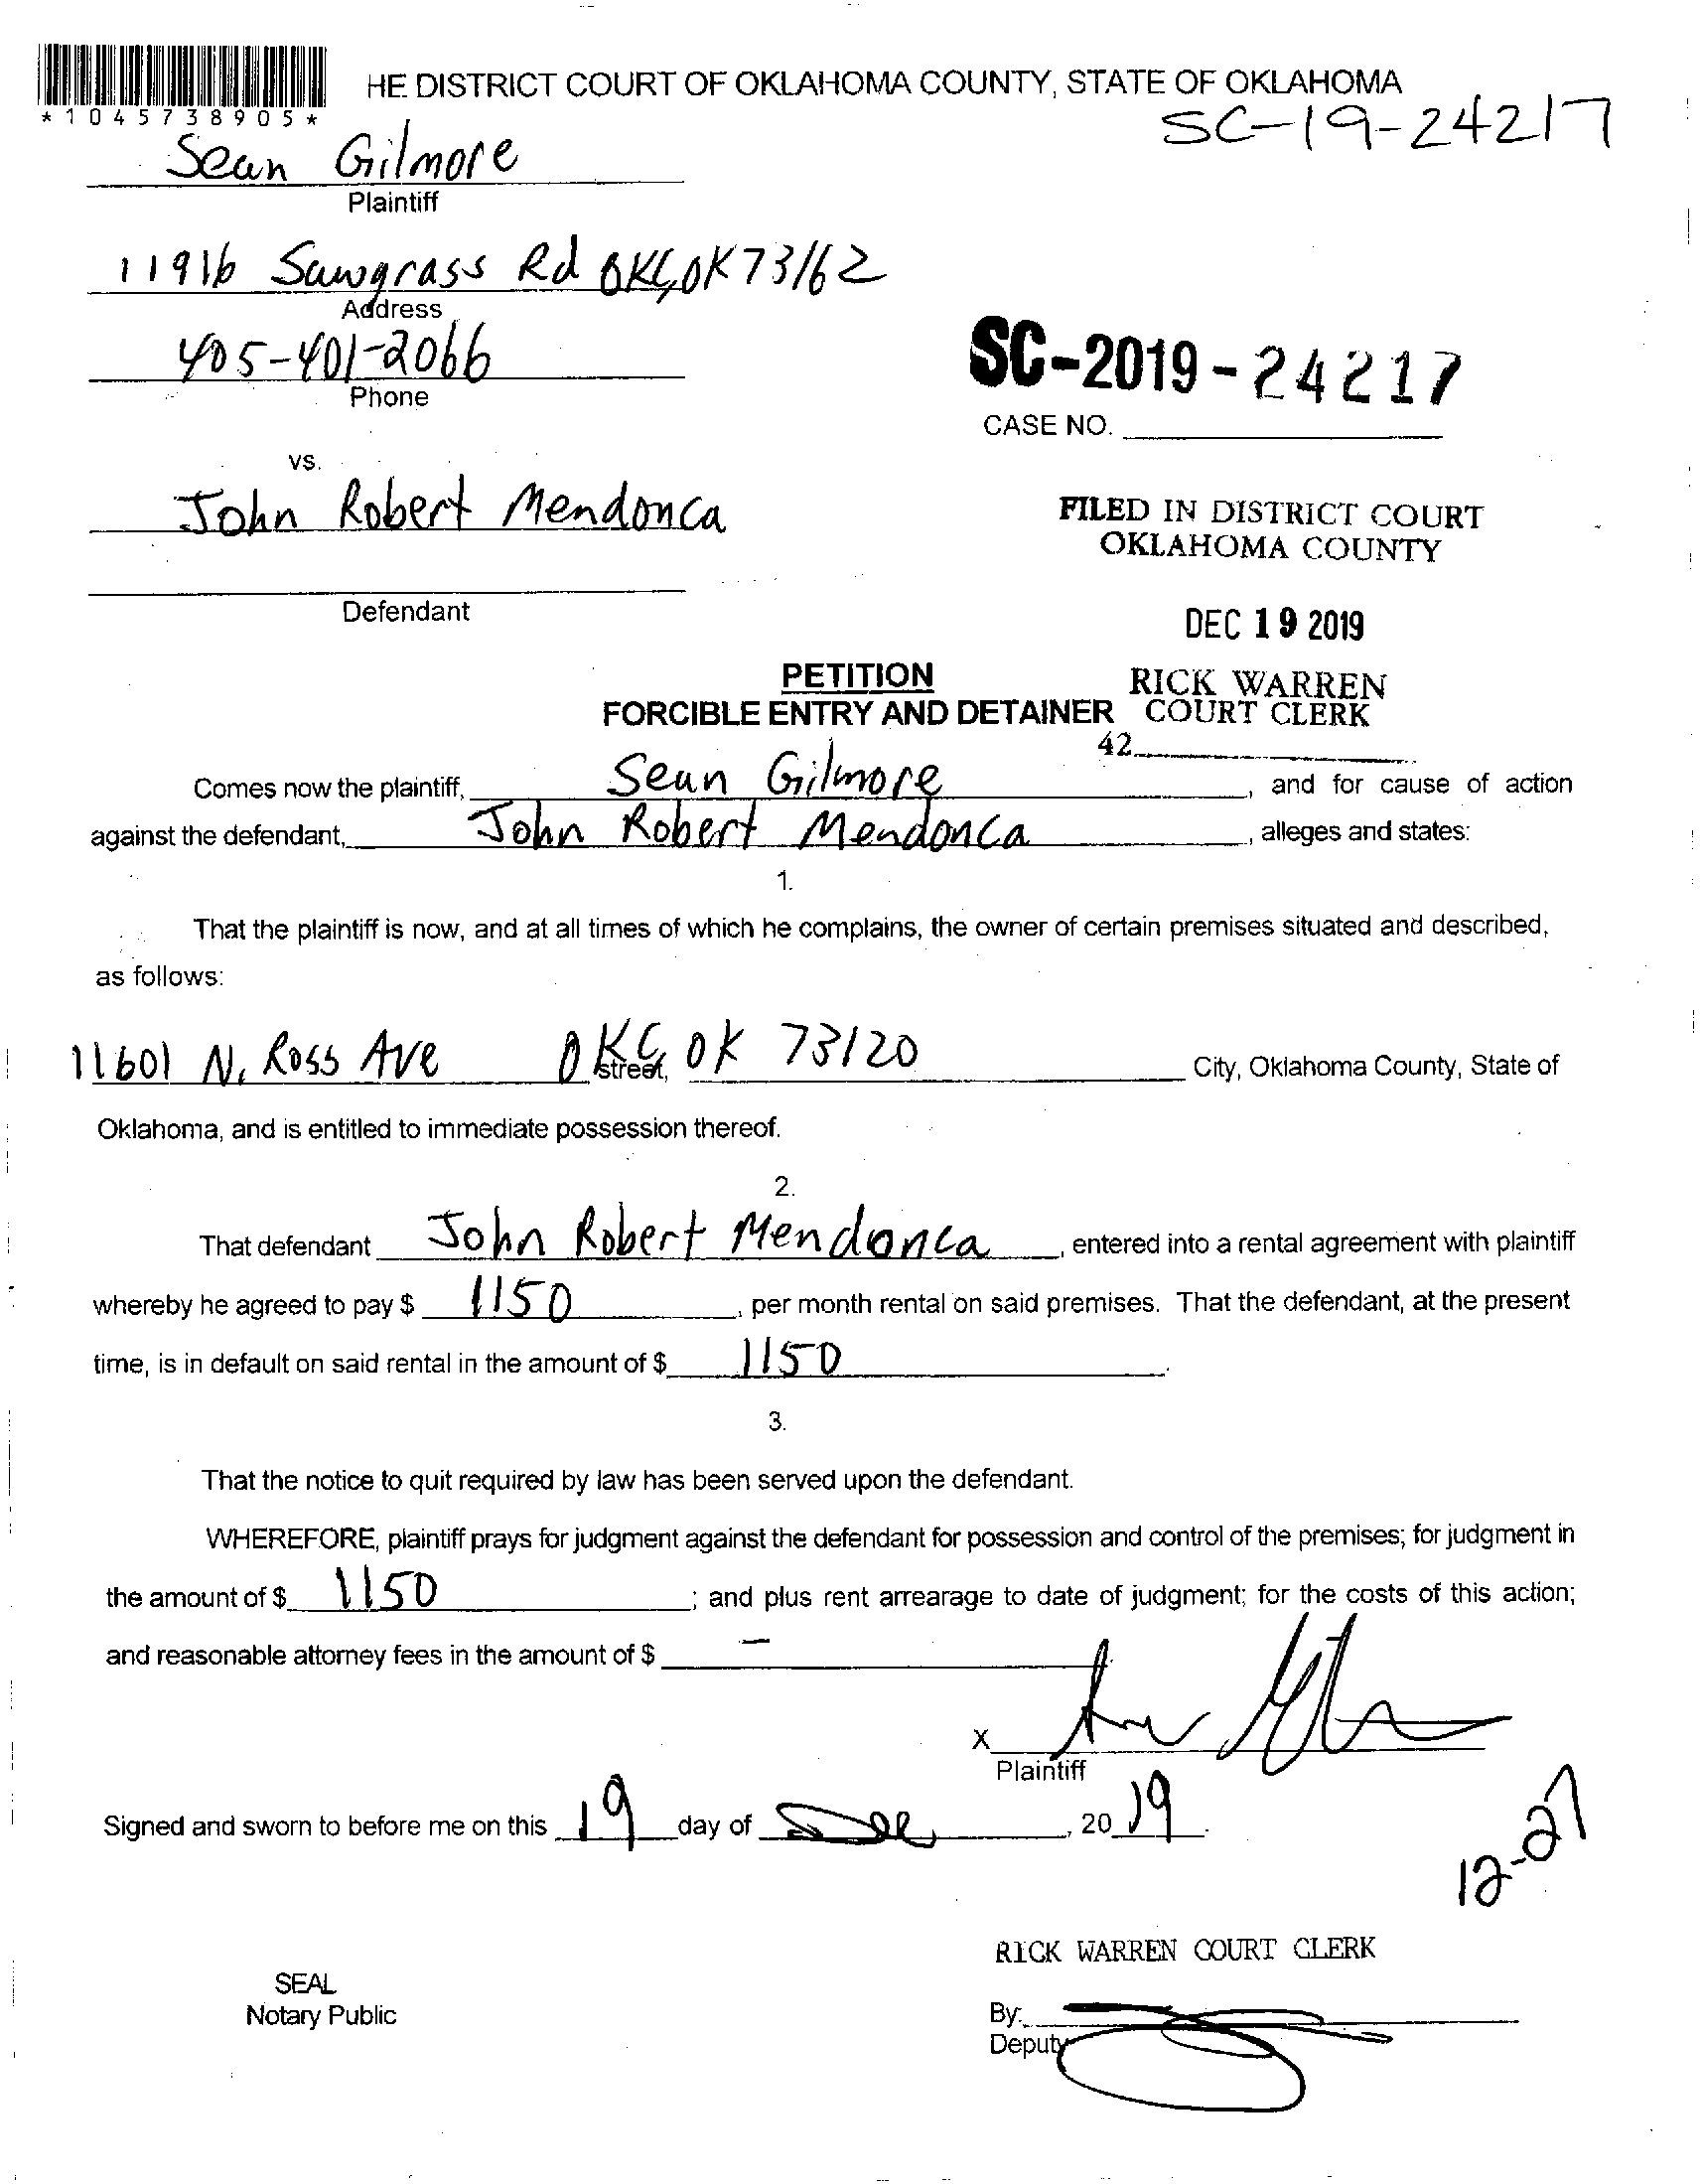 HE DISTRICT COURT OF OKLAHOMA COUNTY, STATE OF OKLAHOMA
*1045738905*
SC-19-24217
Sean Gilmore
Plaintiff
11916 Sawgrass Rd OKC, OK 73162
Address
405-401-2066
Phone
SC-2019-24217
CASE NO.
vs.
John Robert Mendonca
FILED IN DISTRICT COURT
OKLAHOMA COUNTY
Defendant
DEC 19 2019
PETITION
RICK WARREN
FORCIBLE ENTRY AND DETAINER COURT CLERK
42
Comes now the plaintiff, Sean Gilmore, and for cause of action
against the defendant, John Robert Mendonca, alleges and states:
1.
That the plaintiff is now, and at all times of which he complains, the owner of certain premises situated and described,
as follows:
11601 N. Ross Ave OKC, street, OK 73120 City, Oklahoma County, State of
Oklahoma, and is entitled to immediate possession thereof.
2.
That defendant John Robert Mendonca, entered into a rental agreement with plaintiff
whereby he agreed to pay $ 1150, per month rental on said premises. That the defendant, at the present
time, is in default on said rental in the amount of $ 1150.
3.
That the notice to quit required by law has been served upon the defendant.
WHEREFORE, plaintiff prays for judgment against the defendant for possession and control of the premises; for judgment in
the amount of $ 1150; and plus rent arrearage to date of judgment; for the costs of this action;
and reasonable attorney fees in the amount of $ -
X
Plaintiff
Signed and sworn to before me on this 19 day of Dec, 2019.
12-27
RICK WARREN COURT CLERK
SEAL
Notary Public
By:
Deputy